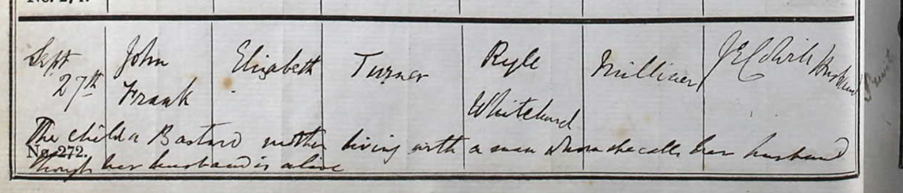 Sept John Elizabeth Turner Ryle Milliner
27th Frank Whitehard
The child a Bastard mother living with a man whom she calls her husband
No. 272.
though her husband is alive